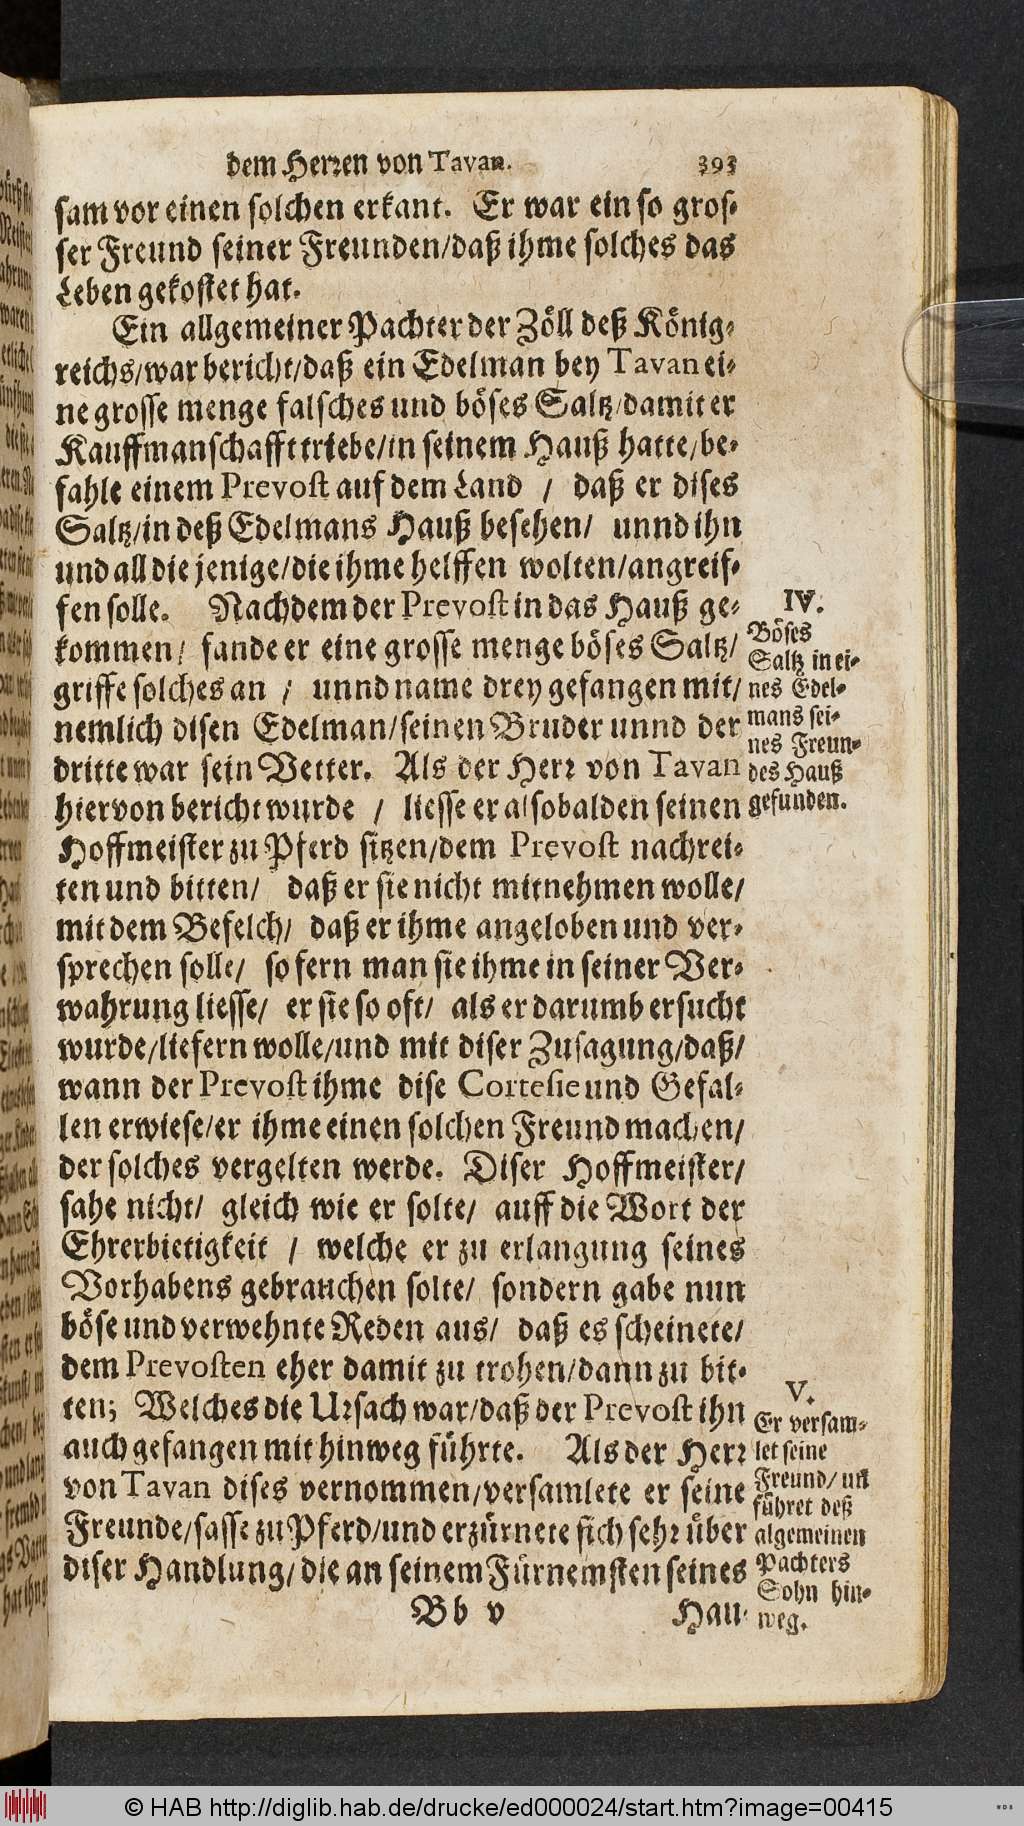 dem Herren von Tavan. 393
sam vor einen solchen erkant. Er war ein so gros-
ser Freund seiner Freunden/daß ihme solches das
Leben gekostet hat.
Ein allgemeiner Pachter der Zöll deß König-
reichs/war bericht/daß ein Edelman bey Tavan ei-
ne grosse menge falsches und böses Saltz/damit er
Kauffmanschafft triebe/in seinem Hauß hatte/be-
fahle einem Prevost auf dem Land / daß er dises
Saltz/in deß Edelmans Hauß besehen/ unnd ihn
und all die jenige/die ihme helffen wolten/angreif-
fen solle. Nachdem der Prevost in das Hauß ge-
kommen/ fande er eine grosse menge böses Saltz/
griffe solches an / unnd name drey gefangen mit/
nemlich disen Edelman/seinen Bruder unnd der
dritte war sein Vetter. Als der Herr von Tavan
hiervon bericht wurde / liesse er alsobalden seinen
Hoffmeister zu Pferd sitzen/dem Prevost nachrei-
ten und bitten/ daß er sie nicht mitnehmen wolle/
mit dem Befelch/ daß er ihme angeloben und ver-
sprechen solle/ so fern man sie ihme in seiner Ver-
wahrung liesse/ er sie so oft/ als er darumb ersucht
wurde/liefern wolle/und mit diser Zusagung/daß/
wann der Prevost ihme dise Cortesie und Gefal-
len erwiese/er ihme einen solchen Freund machen/
der solches vergelten werde. Diser Hoffmeister/
sahe nicht/ gleich wie er solte/ auff die Wort der
Ehrerbietigkeit / welche er zu erlangung seines
Vorhabens gebrauchen solte/ sondern gabe nun
böse und verwehnte Reden aus/ daß es scheinete/
dem Prevosten eher damit zu trohen/dann zu bit-
ten; Welches die Ursach war/daß der Prevost ihn
auch gefangen mit hinweg führte. Als der Herr
von Tavan dises vernommen/versamlete er seine
Freunde/sasse zu Pferd/und erzürnete sich sehr über
diser Handlung/die an seinem Fürnemsten seines
Bb v Hau-
IV.
Böses
Saltz in ei-
nes Edel-
mans sei-
nes Freun-
des Hauß
gefunden.
V.
Er versam-
let seine
Freund/ uñ
führet deß
algemeinen
Pachters
Sohn hin-
weg.
© HAB http://diglib.hab.de/drucke/ed000024/start.htm?image=00415